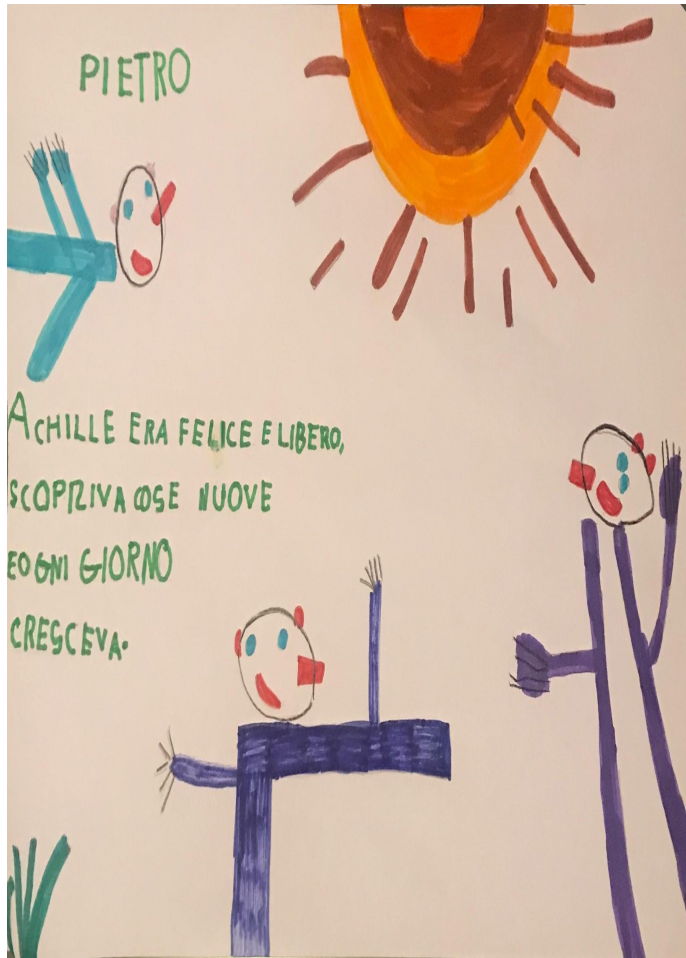 PIETRO
ACHILLE ERA FELICE E LIBERO,
SCOPRIVA COSE NUOVE
E OGNI GIORNO
CRESCEVA.